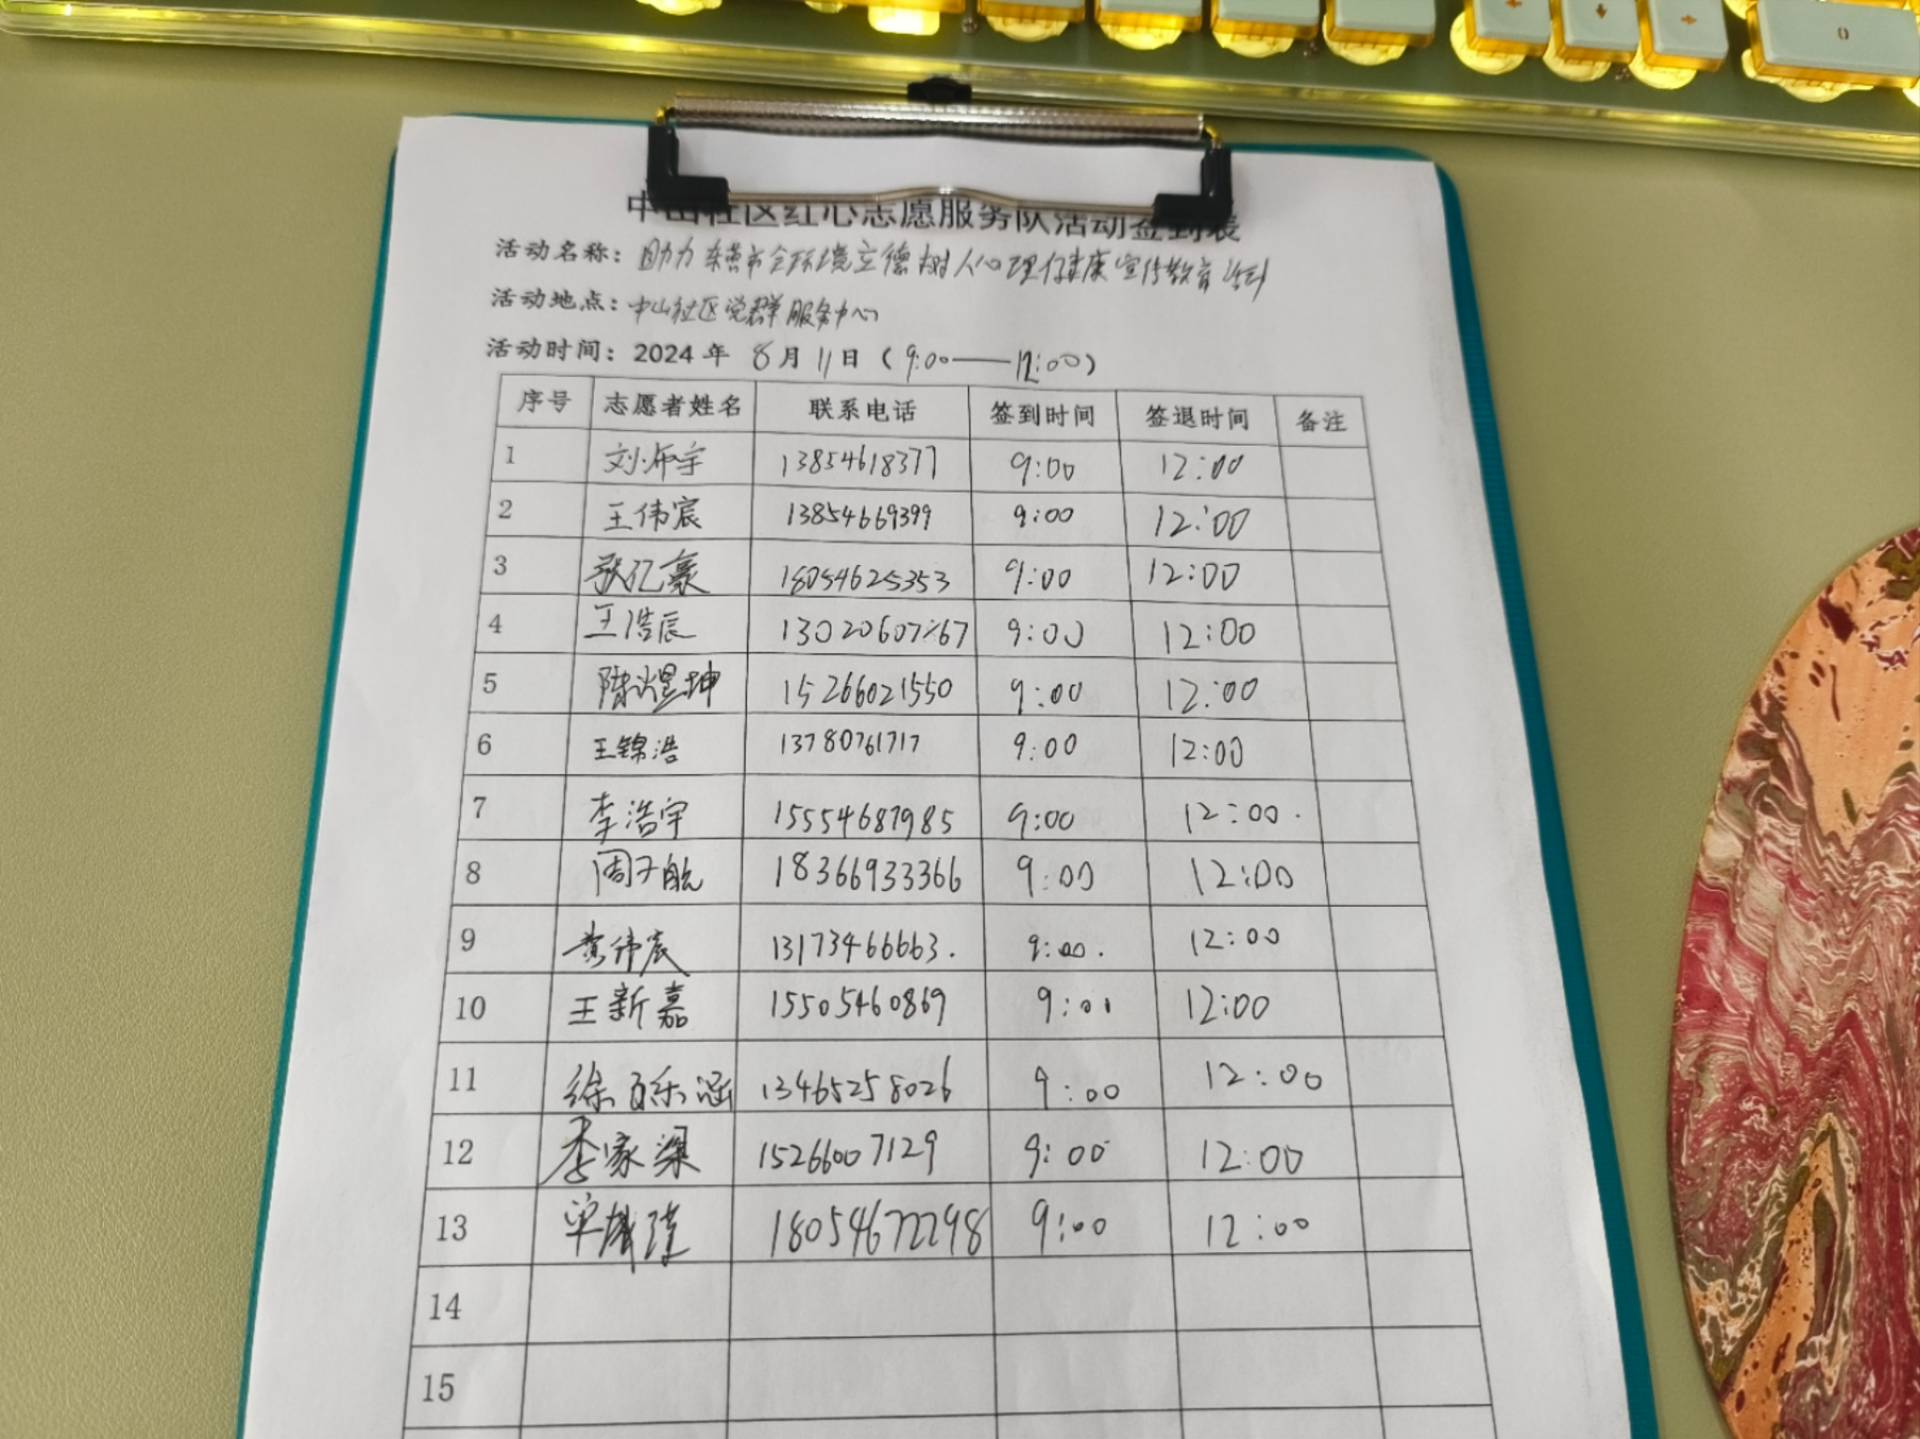 中山社区红心志愿服务队活动签到表
活动名称：助力东营市全环境立德树人心理健康宣传教育活动
活动地点：中山社区党群服务中心
活动时间：2024年 8月11日（9:00——12:00）
序号 志愿者姓名 联系电话 签到时间 签退时间 备注
1 刘宇 13854618377 9:00 12:00
2 王伟宸 13854669399 9:00 12:00
3 张亿豪 18054625353 9:00 12:00
4 王浩辰 9:00 12:00
5 陈煜坤 15266021550 9:00 12:00
6 王锦浩 13780761717 9:00 12:00
7 李浩宇 15554687985 9:00 12:00
8 周子航 18366933366 9:00 12:00
9 黄伟宸 13173466663. 9:00. 12:00
10 王新嘉 15505460869 9:01 12:00
11 徐百乐涵 13465258026 9:00 12:00
12 李家梁 15266007129 9:00 12:00
13 18054672298 9:00 12:00
14
15
0